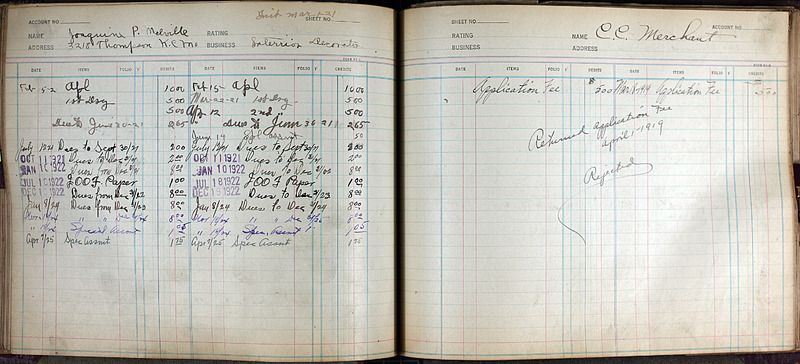 Init Mar 1-21
ACCOUNT NO.
SHEET NO.
NAME Joaquine P. Melville
RATING
ADDRESS 3218 Thompson K.C. Mo
BUSINESS Interior Decorator
DATE ITEMS FOLIO DEBITS DATE ITEMS FOLIO CREDITS
Feb 15-21 Apl 100 Feb 15- Apl 100
1st Deg 500 Mar-22-21 1st Deg 500
500 Apr 12 2nd " 500
Dues to June 30-21 265 Dues to June 30 21 265
June 14 50
July 1921 Dues to Sept 30/21 200 July 19/21 Dues to Sept 30/21 200
OCT 11 1921 Dues to Dec 31/21 200 OCT 11 1921 Dues to Dec 31/21 200
JAN 10 1922 Dues to Dec 800 JAN 10 1922 Dues to Dec 800
JUL 18 1922 IOOF Paper 100 JUL 18 1922 IOOF Paper 100
DEC 19 1922 Dues from Dec 800 DEC 19 1922 Dues to Dec 31/23 800
Jan 8/24 Dues from Dec 31/23 800 Jan 8/24 Dues to Dec 31/24 800
Nov 18/24 " " Dec 31/24 800 Nov 18/24 " Dec 31/25 800
" 18/24 Special Assmt 1 05 " 18/24 Spec. Assmt 1 05
Apr 7/25 Spec Assmt 1 75 Apr 7/25 Spec Assmt 1 75
SHEET NO.
ACCOUNT NO.
RATING
NAME C.C. Merchant
BUSINESS
ADDRESS
DATE ITEMS FOLIO DEBITS DATE ITEMS FOLIO CREDITS
Application Fee 500 Mar 18-19 Application Fee 500
Returned application Fee
april 1-1919
Rejected